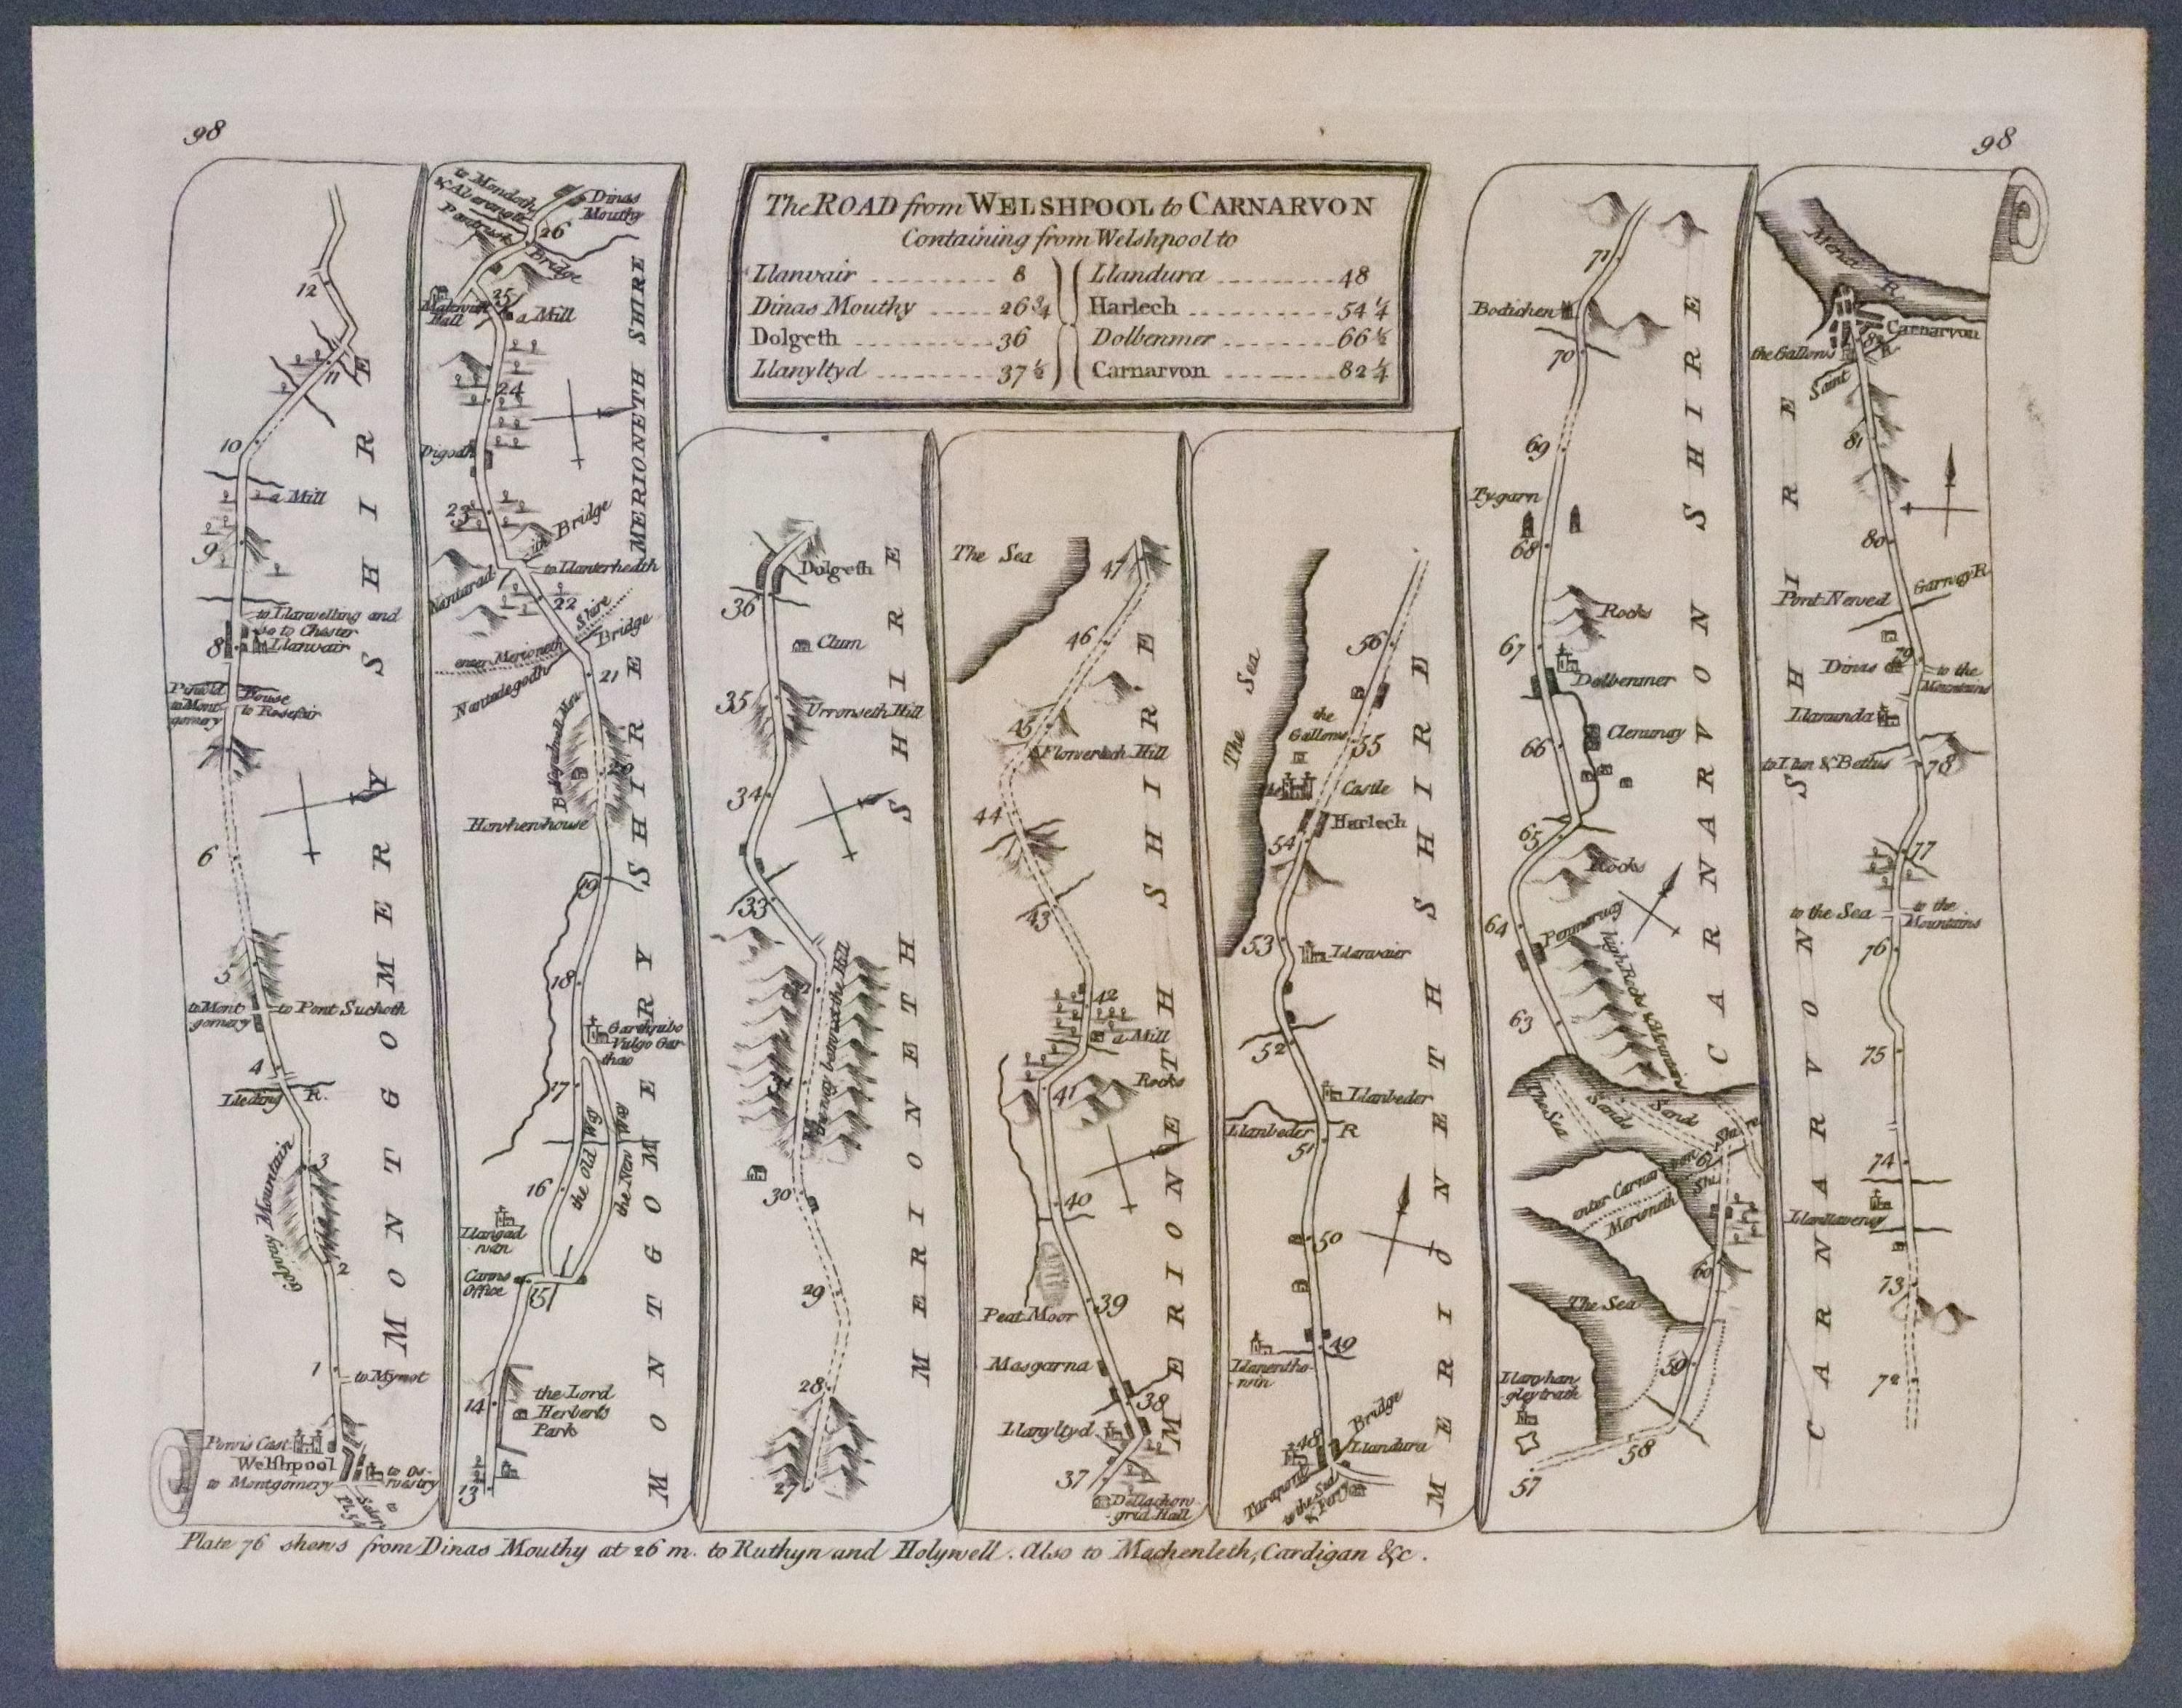 98
98
The ROAD from WELSHPOOL to CARNARVON
Containing from Welshpool to
Llanvair 8
Dinas Mouthy 26 3/4
Dolgeth 36
Llanyltyd 37 1/2
Llandura 48
Harlech 54 1/4
Dolbenmer 66 1/2
Carnarvon 82 1/4
12
11
10
a Mill
9
to Llanvelling and
so to Chester
8
Llanvair
House
to Mont
gomery
7
6
5
to Mont
gomery
to Pont Suchoth
4
Lleding R.
3
Golnvay Mountain
2
1
to Mynot
Powis Cast.
Welshpool
to Os-
westry
to Montgomery
to
Salop
Pl. 54
MONTGOMERY SHIRE
Dinas
Mouthy
26
Bridge
25
a Mill
Hall
24
23
the Bridge
to Llanterhedth
22
Shire
Bridge
enter Merioneth
21
Howhenhouse
19
18
Garthnibo
Vulgo Gar
thao
17
the Old Way
the New Way
16
Llangad
van
Canns
Office
15
14
the Lord
Herberts
Park
13
MONTGOMERY SHIRE
MERIONETH SHIRE
Dolgeth
36
Clum
35
Urronseth Hill
34
33
the way betwixt the Hill
30
29
28
27
MERIONETH SHIRE
The Sea
47
46
45
Flowerlech Hill
44
43
42
a Mill
Rocks
41
40
Peat Moor
39
Masgarna
38
Llanyltyd
37
Dellachon
grid Hall
MERIONETH SHIRE
The Sea
56
the
Gallows
55
Castle
Harlech
54
53
Llanvair
52
Llanbeder
Llanbeder R
51
50
49
Llanentho-
win
48
Bridge
Llandura
to the Sea
& Ferry
MERIONETH SHIRE
71
Bodichen
70
69
Tygarn
68
Rocks
67
Dolbenmer
Clenunay
66
65
Rocks
64
Pennaruay
high Rocks & Mountain
63
The Sea
Sands
Sands
61
enter Carnarvon Shire
Merioneth Shi.
60
The Sea
59
Llanyhan
gleytrath
58
57
CARNARVON SHIRE
Menai R.
Carnarvon
82
the Gallows
Saint R.
81
80
Garnvay R.
Pont Newed
79
Dinas
to the
Mountains
Llanunda
to Llan & Bettus
78
77
to the Sea
to the
Mountains
76
75
74
Llanllaveney
73
72
CARNARVON SHIRE
Plate 76 shews from Dinas Mouthy at 26 m. to Ruthyn and Holywell. Also to Machenleth, Cardigan &c.